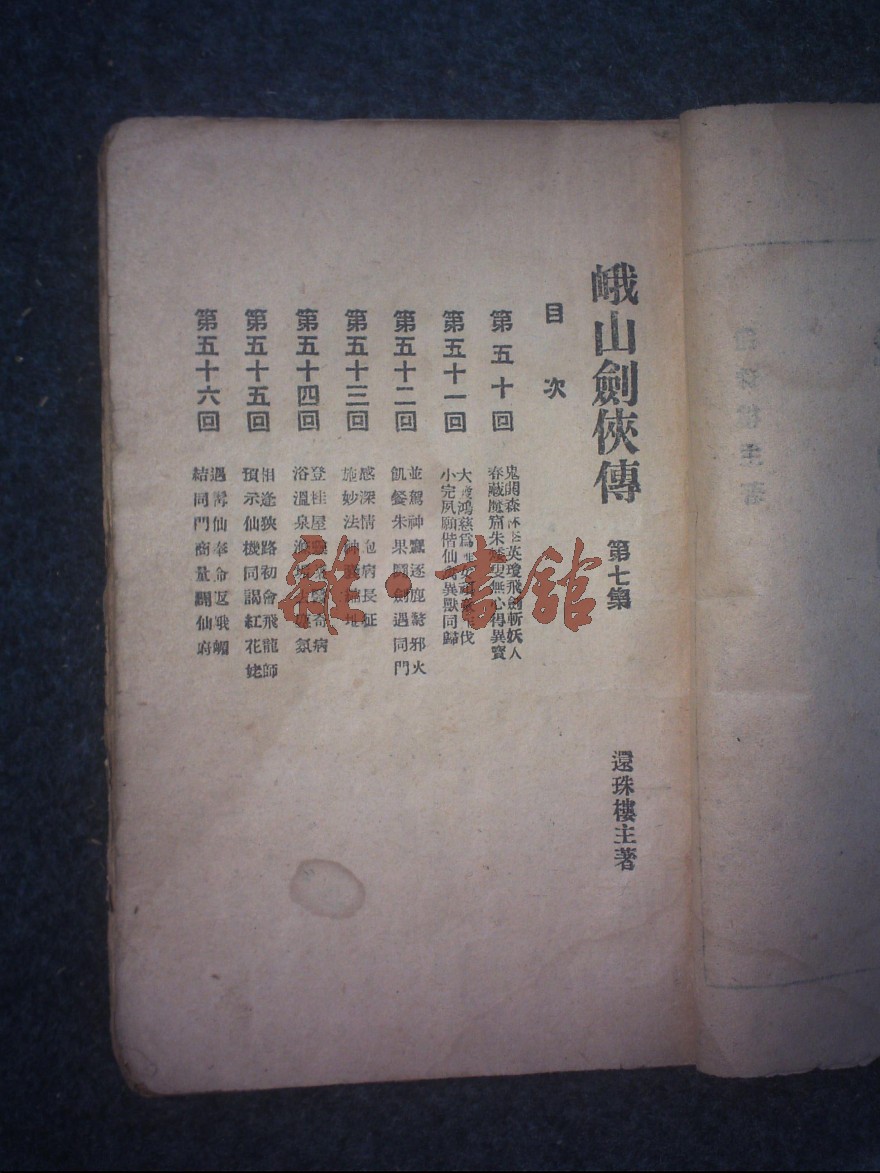 峨山劍俠傳 第七集 還珠樓主著
目次
第五十回
鬼闕森林 英瓊飛劍斬妖人
春藏魔窟朱 叟無心得異寶
第五十一回
大 鴻慈爲 伐
小完夙願偕仙禽異獸同歸
第五十二回
並駕神鷲逐鹿驚邪火
飢餐朱果鬬劍遇同門
第五十三回
感深情抱病長征
施妙法神
第五十四回
登桂屋 奇病
浴溫泉 氛
第五十五回
相逢狹路初會飛龍師
預示仙機同謁紅花姥
第五十六回
遇 仙奉命返峨嵋
結同門商量闢仙府
雜·書館